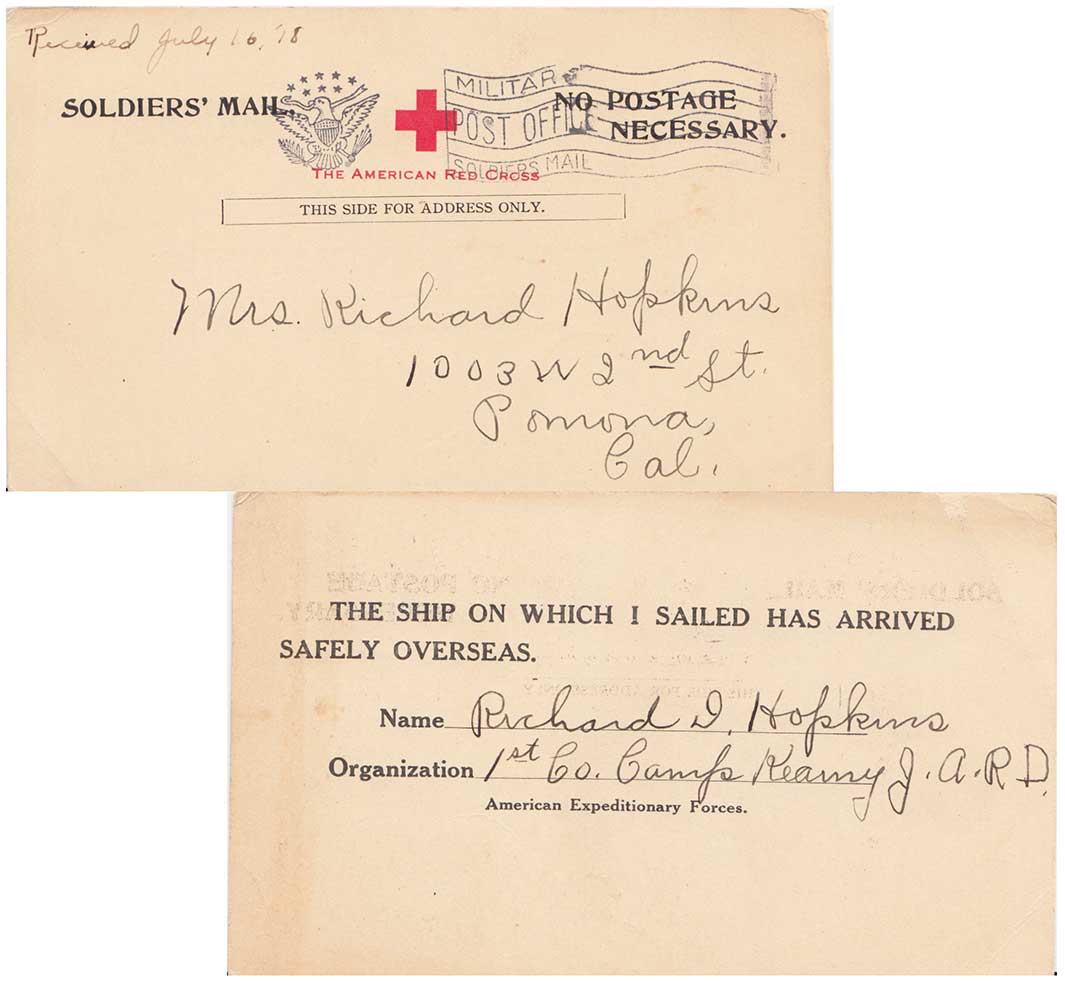 Received July 16, '18
SOLDIERS' MAIL.
MILITARY
POST OFFICE
SOLDIERS MAIL
NO POSTAGE
NECESSARY.
THE AMERICAN RED CROSS
THIS SIDE FOR ADDRESS ONLY.
Mrs. Richard Hopkins
1003 W 2nd St.
Pomona,
Cal.
THE SHIP ON WHICH I SAILED HAS ARRIVED
SAFELY OVERSEAS.
Name Richard D. Hopkins
Organization 1st Co. Camp Kearny J. A. R. D.
American Expeditionary Forces.